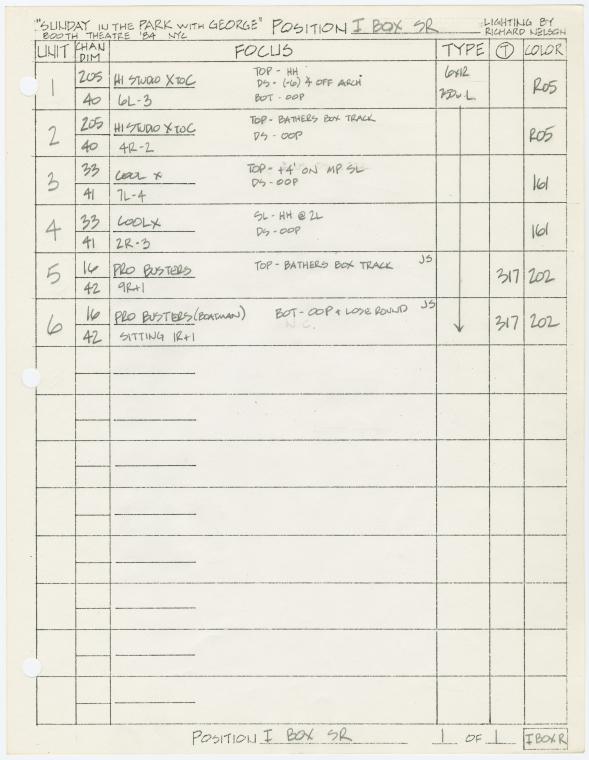 "SUNDAY IN THE PARK WITH GEORGE" POSITION I BOX SR LIGHTING BY
BOOTH THEATRE '84 NYC RICHARD NELSON
UNIT CHAN DIM FOCUS TYPE T COLOR
1 205 HI STUDIO X TOC TOP - HH 6x12 R05
DS - (-6) 4 OFF ARCH
40 6L-3 BOT - OOP 750W L
2 205 HI STUDIO X TOC TOP - BATHERS BOX TRACK R05
40 4R-2 DS - OOP
3 33 COOL X TOP - +4' ON MP SL 161
41 7L-4 DS - OOP
4 33 COOL X SL - HH @ 2L 161
41 2R-3 DS - OOP
5 16 PRO BUSTERS TOP - BATHERS BOX TRACK JS 317 202
42 9R+1
6 16 PRO BUSTERS (BOATMAN) BOT - OOP + LOSE ROUND JS 317 202
42 SITTING 1R+1 N.C.
POSITION I BOX SR 1 OF 1 I BOX R